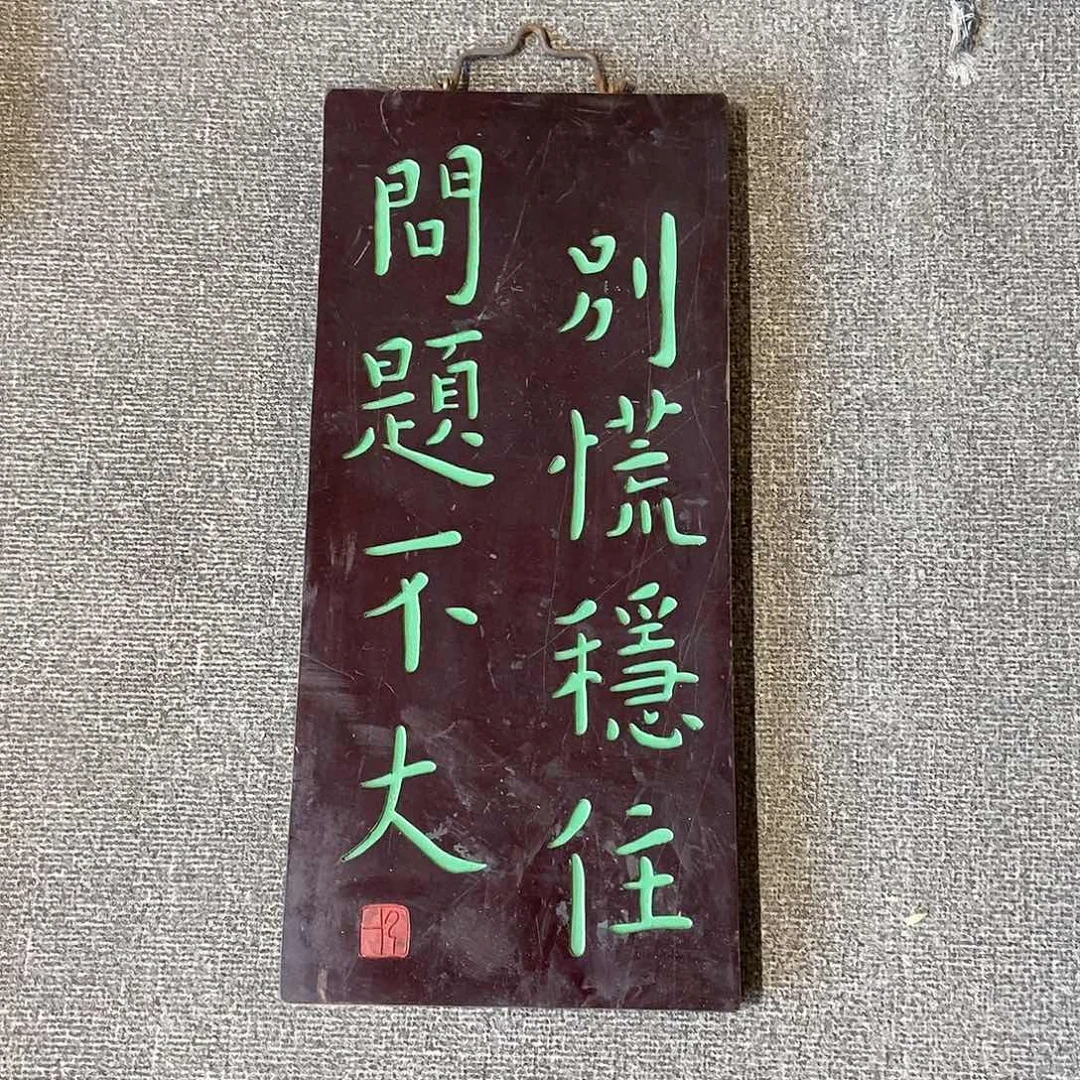 別慌穩住
問題不大